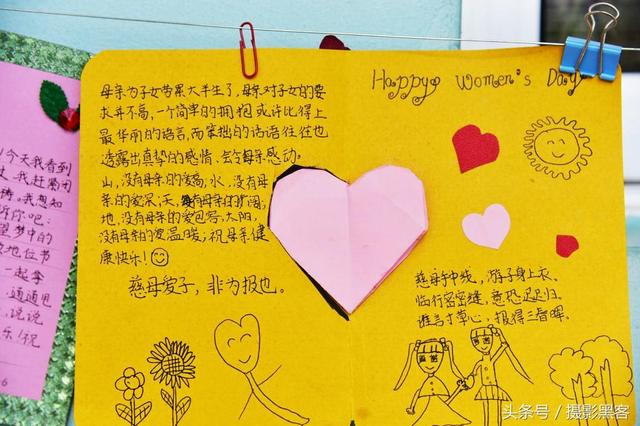 今天我看到
我赶紧闭
祷，我想知
诉你吧：
望梦中的
地位节
一起拿
通通思
说说
乐！祝
6
母亲为子女劳累大半生了，母亲对子女的要
求并不高，一个简单的拥抱或许比得上
最华丽的语言，而笨拙的话语往往也
透露出真挚的感情，会令母亲感动。
山，没有母亲的爱高；水，没有母
亲的爱深；天，没有母亲的广阔；
地，没有母亲的爱包容；太阳，
没有母亲的爱温暖；祝母亲健
康快乐！
慈母爱子，非为报也。
Happy Women's Day
慈母手中线，游子身上衣。
临行密密缝，意恐迟迟归。
谁言寸草心，报得三春晖。
头条号 / 摄影黑客